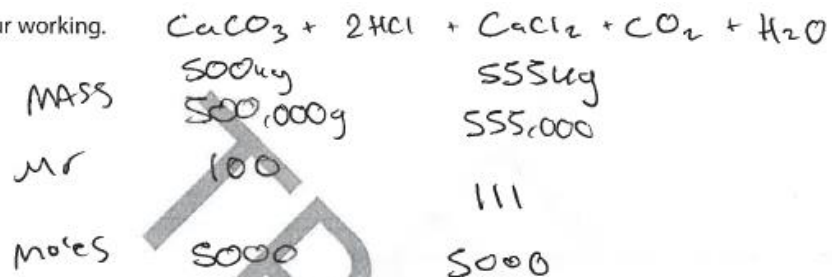 ur working. CaCO₃ + 2HCl + CaCl₂ + CO₂ + H₂O
500kg 555kg
MASS 500,000g 555,000
Mr 100 111
Moles 5000 5000